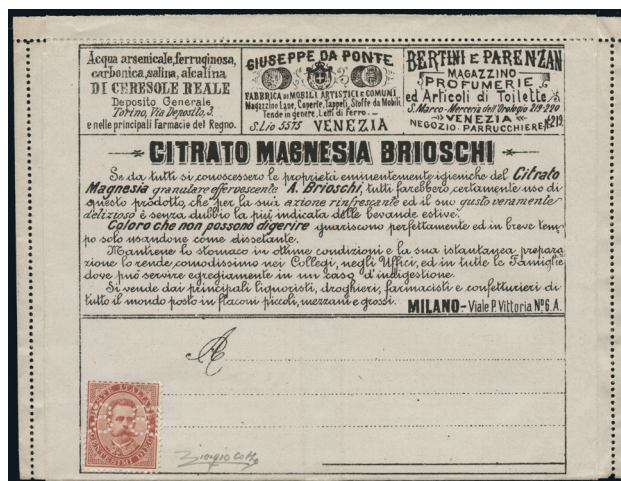 Acqua arsenicale, ferruginosa,
carbonica, salina, alcalina
DI CERESOLE REALE
Deposito Generale
Torino, Via Deposito, 3.
e nelle principali Farmacie del Regno.
GIUSEPPE DA PONTE
FABBRICA DI MOBILI ARTISTICI E COMUNI
Magazzino Lane, Coperte, Tappeti, Stoffe da Mobili
Tende in genere, Letti di Ferro.
S. Lio 5575 VENEZIA
BERTINI E PARENZAN
MAGAZZINO
PROFUMERIE
ed Articoli di Toilette
S. Marco - Merceria dell'Orologio 219-220
VENEZIA
NEGOZIO PARRUCCHIERE, 219.
CITRATO MAGNESIA BRIOSCHI
Se da tutti si conoscessero le proprietà eminentemente igieniche del Citrato
Magnesia granulare effervescente A. Brioschi, tutti farebbero certamente uso di
questo prodotto, che per la sua azione rinfrescante ed il suo gusto veramente
delizioso è senza dubbio la più indicata delle bevande estive.
Coloro che non possono digerire guariscono perfettamente ed in breve tem-
po solo usandone come dissetante.
Mantiene lo stomaco in ottime condizioni e la sua istantanea prepara
zione lo rende comodissimo nei Collegi, negli Uffici, ed in tutte le Famiglie
dove può servire egregiamente in un caso d'indigestione.
Si vende dai principali liquoristi, droghieri, farmacisti e confetturieri di
tutto il mondo posto in flaconi piccoli, mezzani e grossi. MILANO - Viale P. Vittoria Nº 6. A.
A
POSTE ITALIANE
CENTESIMI DIECI